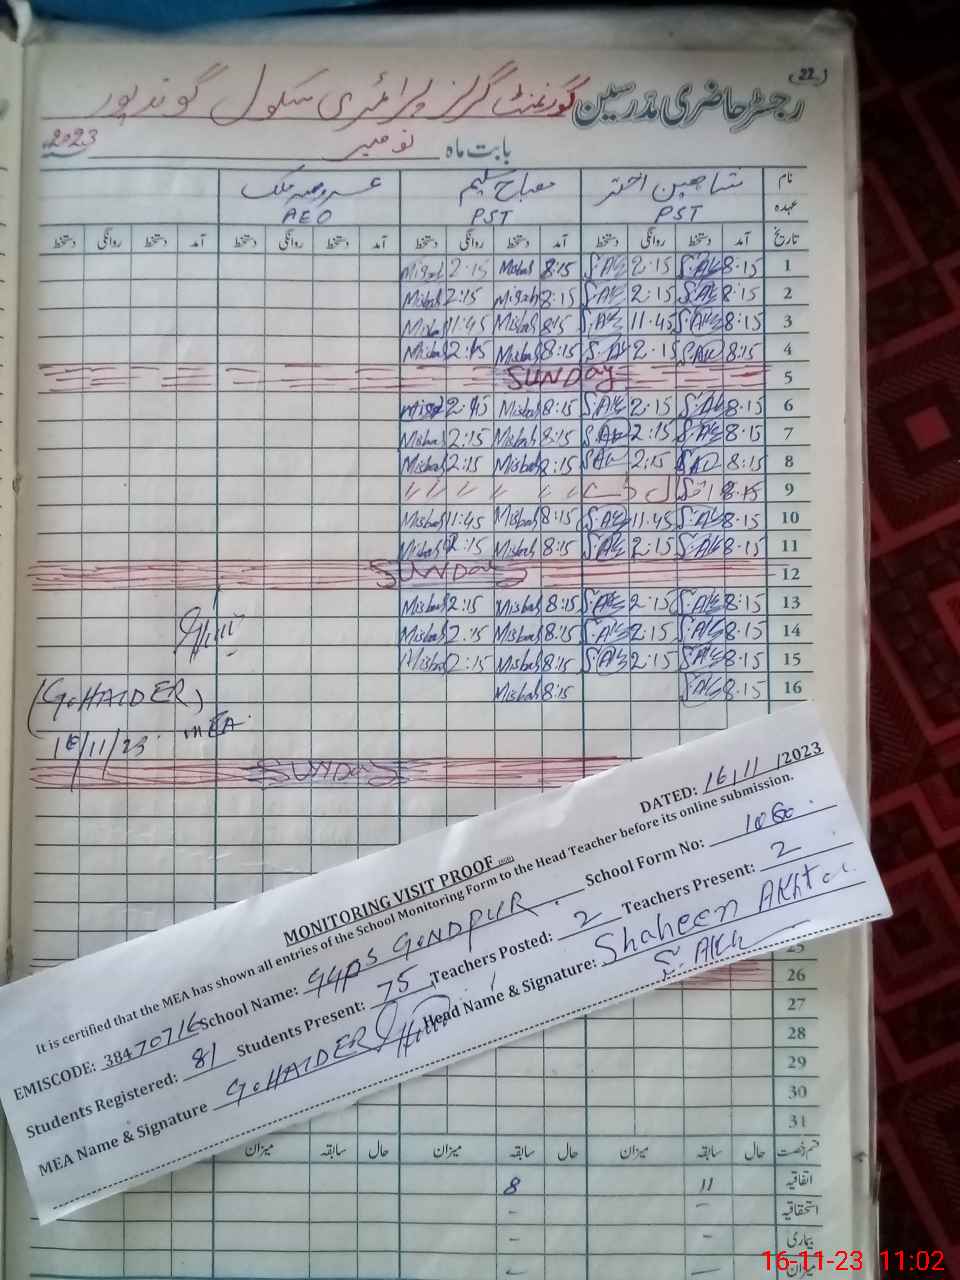 (22)
رجسٹر حاضری مدرسین گورنمنٹ گرلز پرائمری سکول گوندپور
بابت ماہ نومبر 2023
نام شاہین اختر مصباح سلیم
عہدہ PST PST AEO
تاریخ آمد دستخط روانگی دستخط آمد دستخط روانگی دستخط آمد دستخط روانگی دستخط آمد دستخط روانگی دستخط
1 8:15 S.Akh 2:15 S.Akh 8:15 Misbah 2:15 Misbah
2 8:15 S.Akh 2:15 S.Akh 8:15 Misbah 2:15 Misbah
3 8:15 S.Akh 11:45 S.Akh 8:15 Misbah 11:45 Misbah
4 8:15 S.Akh 2:15 S.Akh 8:15 Misbah 2:15 Misbah
5 SUNDAY
6 8:15 S.Akh 2:15 S.Akh 8:15 Misbah 2:15 Misbah
7 8:15 S.Akh 2:15 S.Akh 8:15 Misbah 2:15 Misbah
8 8:15 S.Akh 2:15 S.Akh 2:15 Misbah 2:15 Misbah
9 8:15
10 8:15 S.Akh 11:45 S.Akh 8:15 Misbah 11:45 Misbah
11 8:15 S.Akh 2:15 S.Akh 8:15 Misbah 2:15 Misbah
12 SUNDAY
13 8:15 S.Akh 2:15 S.Akh 8:15 Misbah 2:15 Misbah
14 8:15 S.Akh 2:15 S.Akh 8:15 Misbah 2:15 Misbah
15 8:15 S.Akh 2:15 S.Akh 8:15 Misbah 2:15 Misbah
16 8:15 S.Akh 8:15 Misbah
(G.HAIDER)
MEA
16/11/23
SUNDAY
DATED: 16/11/2023
MONITORING VISIT PROOF
It is certified that the MEA has shown all entries of the School Monitoring Form to the Head Teacher before its online submission.
EMISCODE: 38470716 School Name: GGPS GONDPUR School Form No: 1080
Students Registered: 81 Students Present: 75 Teachers Posted: 2 Teachers Present: 2
MEA Name & Signature G.HAIDER Head Name & Signature: Shaheen Akhtar
S.Akh
25
26
27
28
29
30
31
قسم رخصت حال سابقہ میزان حال سابقہ میزان حال سابقہ میزان
اتفاقیہ 11 8
استحقاقیہ - -
بیماری - -
میزان
16-11-23 11:02